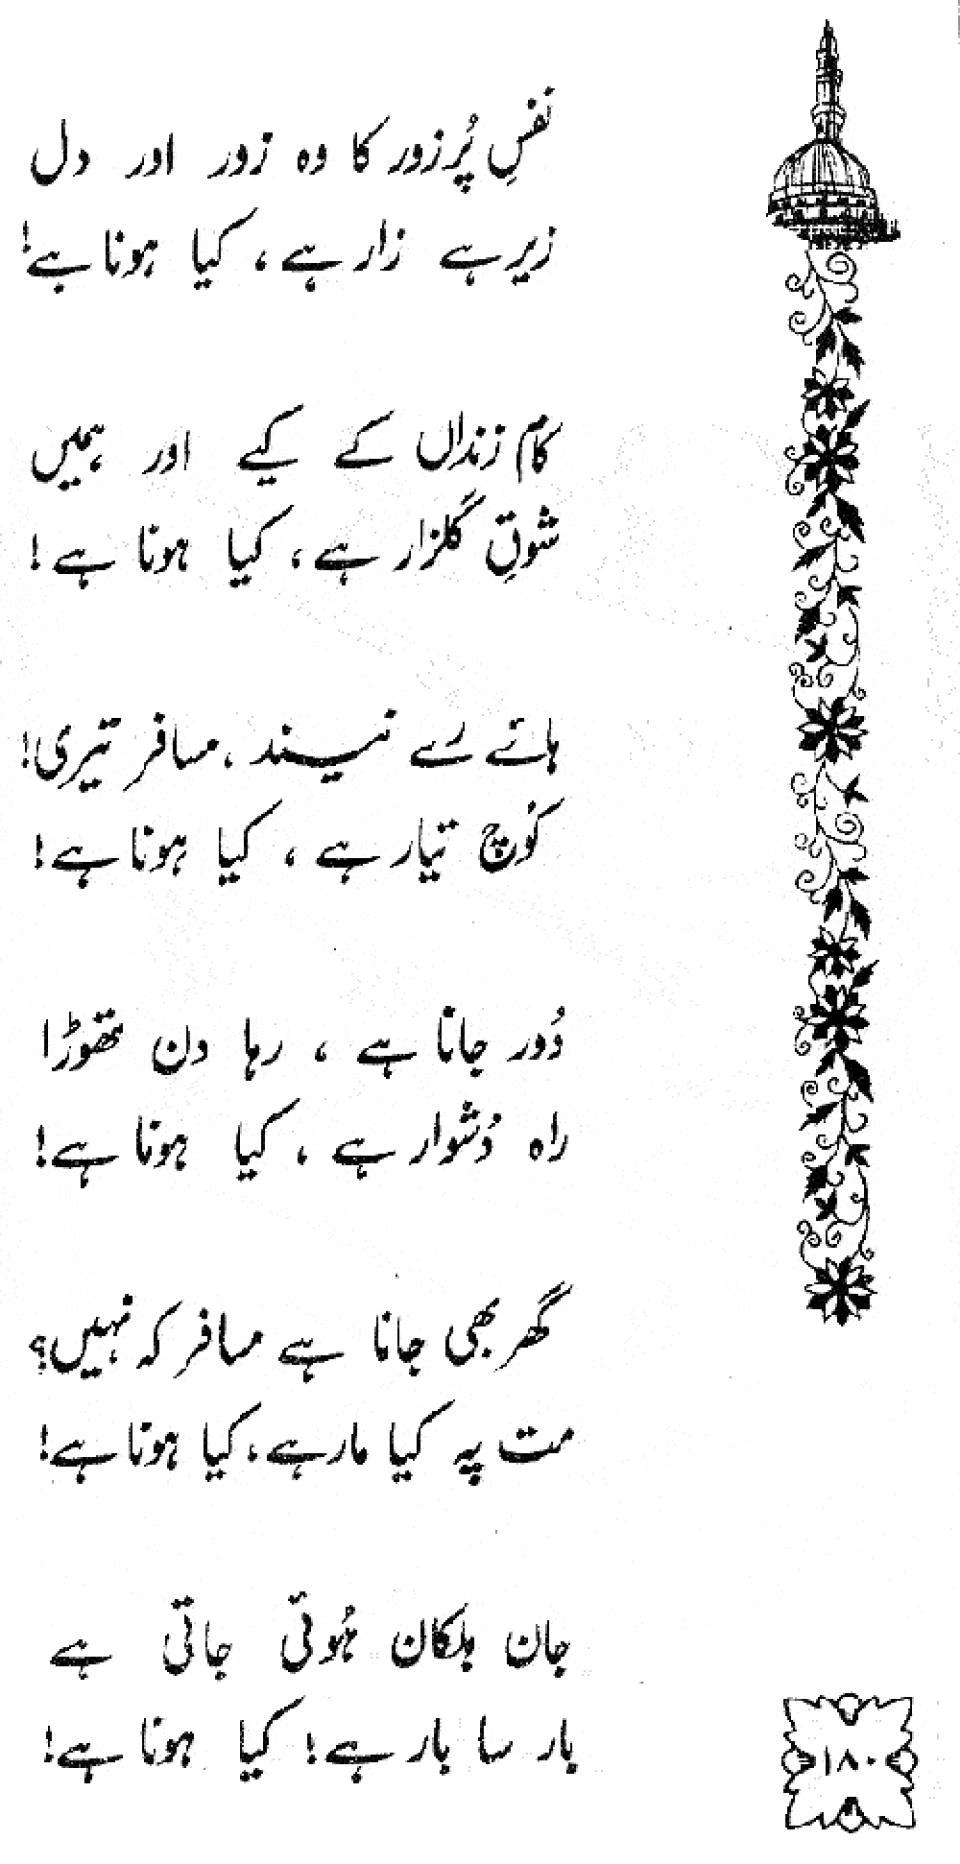 نفسِ پُرزور کا وہ زور اور دل
زیر ہے زار ہے، کیا ہونا ہے!
کام زنداں کے کیے اور ہمیں
شوقِ گلزار ہے، کیا ہونا ہے!
ہائے رے نیند، مسافر تیری!
کُوچ تیار ہے، کیا ہونا ہے!
دُور جانا ہے، رہا دن تھوڑا
راہ دُشوار ہے، کیا ہونا ہے!
گھر بھی جانا ہے مسافر کہ نہیں؟
مت پہ کیا مار ہے، کیا ہونا ہے!
جان ہلکان ہُوئی جاتی ہے
بار سا بار ہے! کیا ہونا ہے!
۱۸۰